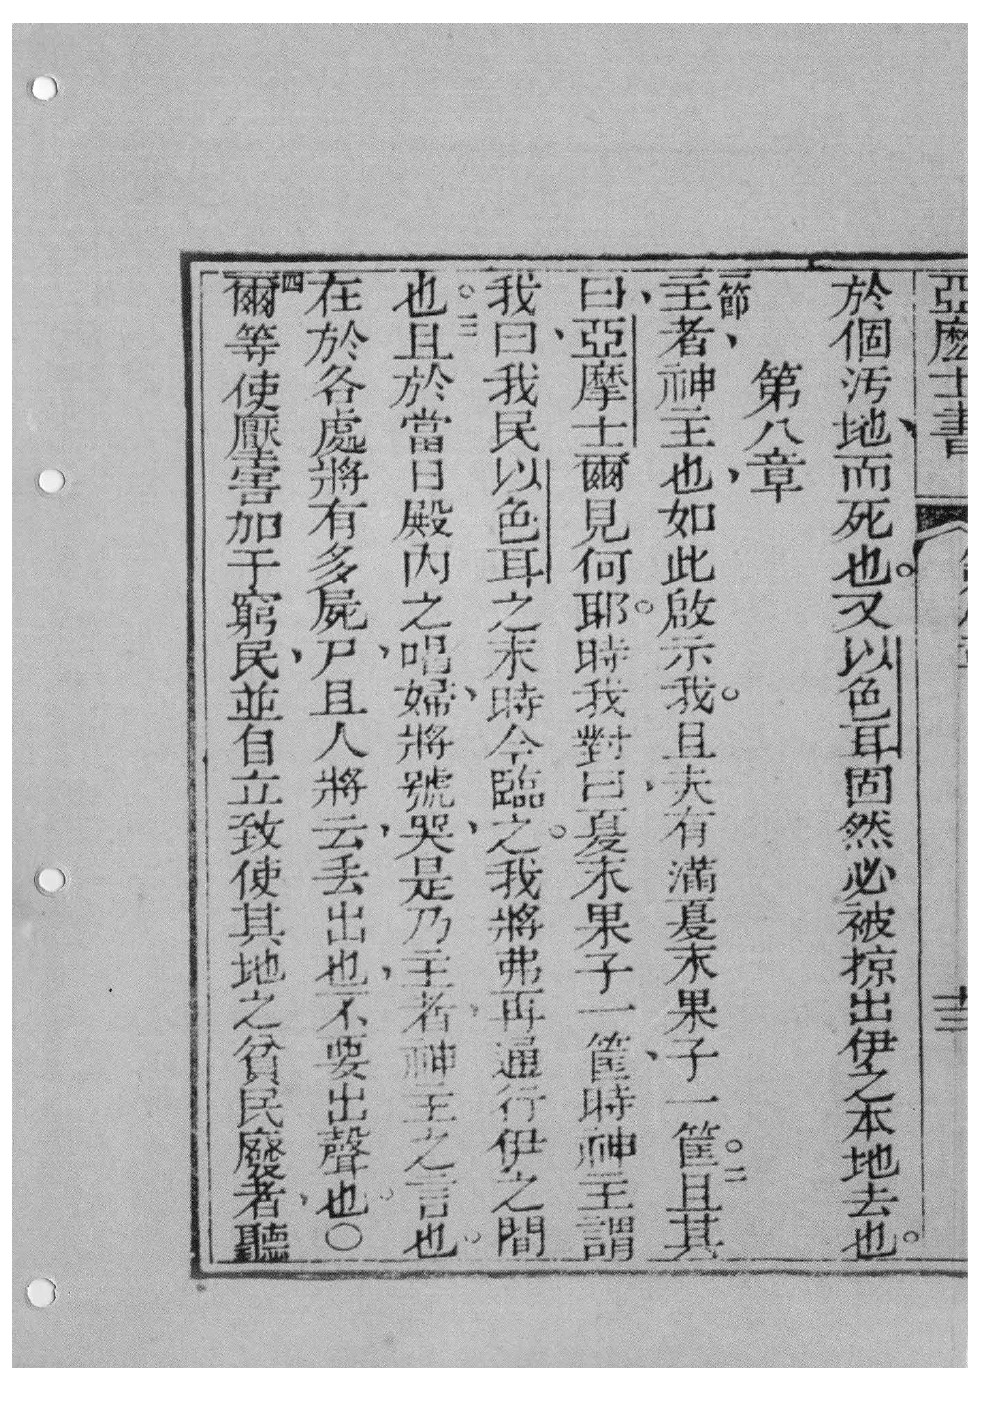 亞麼士書
於個汚地、而死也。又以色耳固然必被掠出伊之本地去也。
第八章
一節主者、神主也、如此啟示我。且夫有滿夏末果子一筐。二且其
曰、亞摩士爾見何耶。時我對曰、夏末果子一筐、時神主謂
我曰、我民以色耳之末時今臨之。我將弗再通行伊之間
也。三且於當日殿內之唱婦、將號哭、是乃主者、神主之言也。
在於各處將有多屍尸、且人將云、丢出也、不要出聲也。〇
四爾等使壓害加于窮民、並自立致使其地之貧民廢者、聽